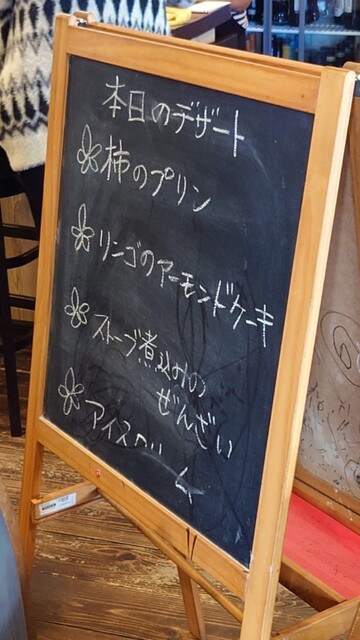 本日のデザート
柿のプリン
リンゴのアーモンドケーキ
ストーブ煮込みの
ぜんざい
アイスクリーム